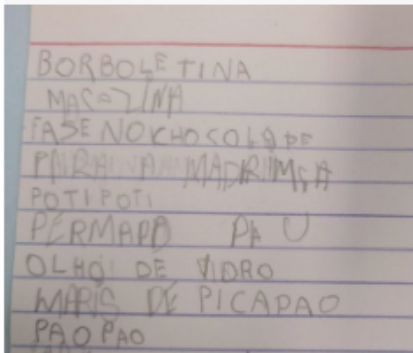 BORBOLETINA
FASENOKHOCOLADE
MADRIMSA
POTIPOTI
PERMAPD PAU
OLHO DE VIDRO
MARIS DE PICAPAO
PAOPAO